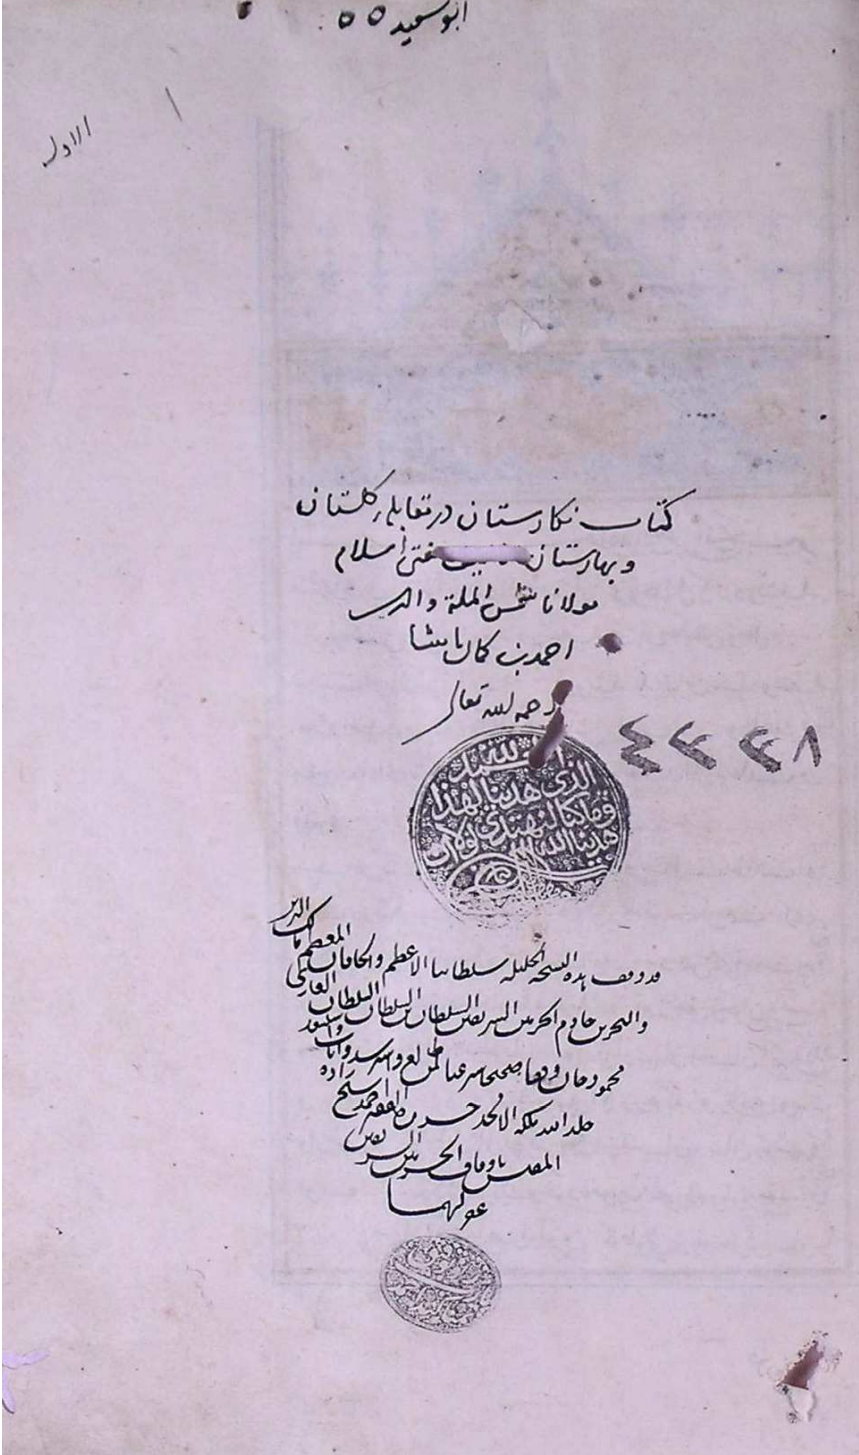 ابو سعید ٥٥
الاول
كتاب نكارستان در مقابلهٔ كلستان
و بهارستان مفتى اسلام
مولانا شمس الملة والدين
احمد بن كمال پاشا
رحمه الله تعالى
٤٢٢٨
الحمد لله
الذى هدينا لهذا
وما كنا لنهتدى لولا ان
هدينا الله
قد وقف هذه النسخة الجليلة سلطاننا الاعظم والخاقان المعظم مالك البرين
والبحرين خادم الحرمين الشريفين السلطان بن السلطان السلطان الغازى
محمود خان وقفا صحيحا شرعيا لمن طالع
خلد الله ملكه الفقير احمد شيخ زاده
المفتش باوقاف الحرمين الشريفين
غفر لهما